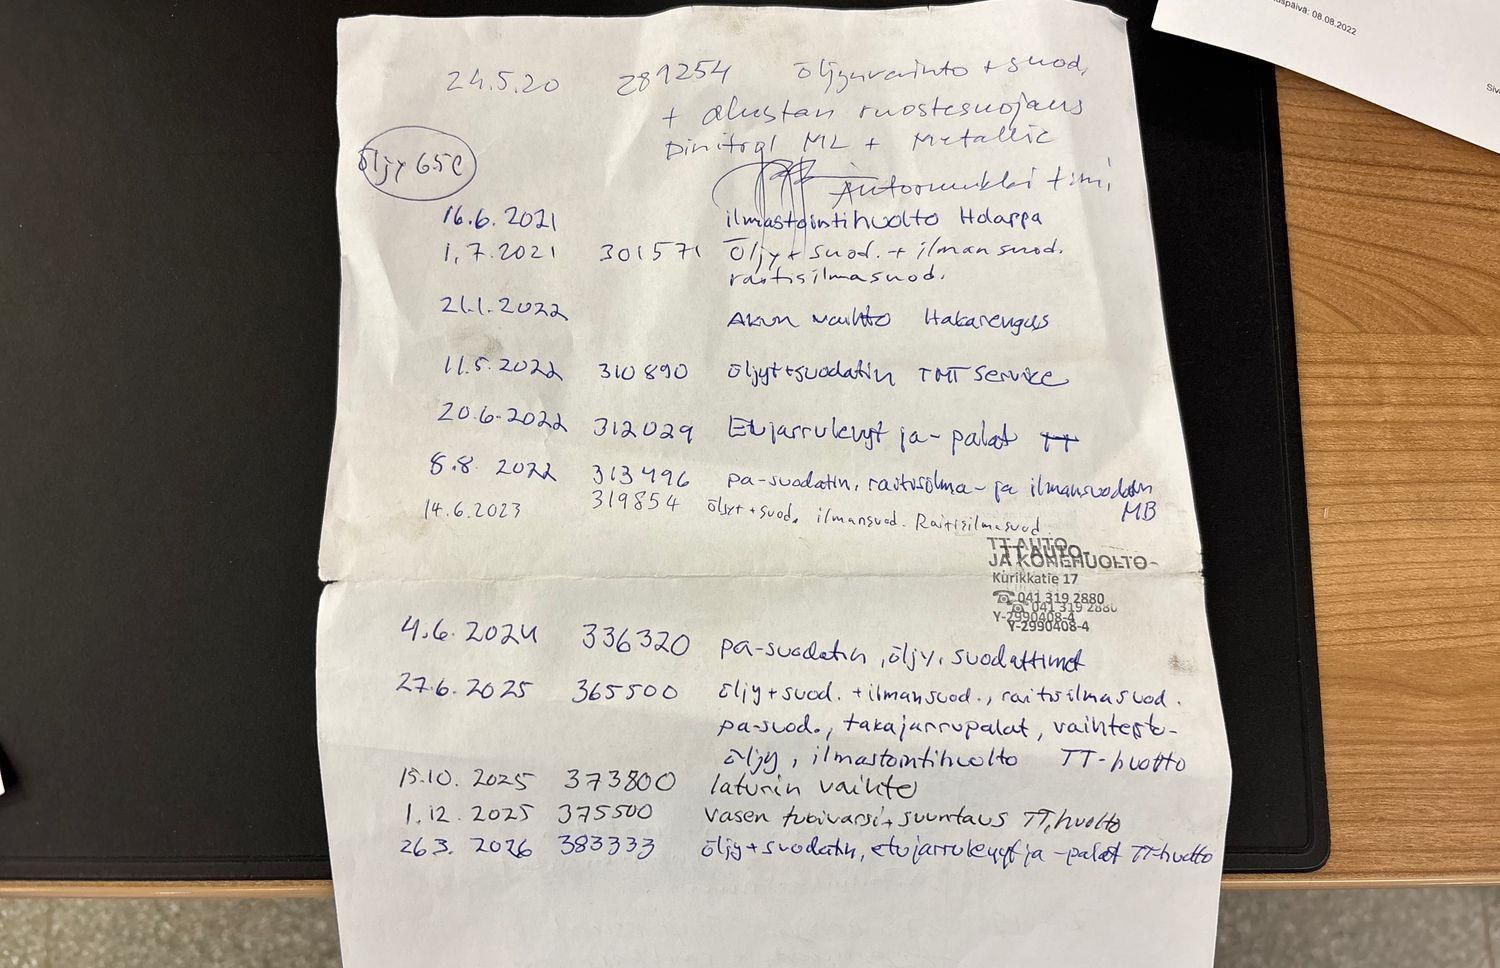 uspäivä: 08.08.2022
Siv
24.5.20 289254 öljynvaihto + suod,
+ alustan ruostesuojaus
Dinitrol ML + Metallic
öljy 65€
Autonurkka timi
16.6.2021 ilmastointihuolto Holappa
1.7.2021 301571 Öljy + suod. + ilmansuod.
raitisilmasuod.
21.1.2022 Akun vaihto Hakarengas
11.5.2022 310890 öljyt+suodatin TMT Service
20.6.2022 312029 Etujarrulevyt ja -palat TT
8.8.2022 313496 pa-suodatin, raitisilma- ja ilmansuodatin
MB
14.6.2023 319854 öljyt + suod, ilmansuod. Raitisilmasuod
TT AUTO-
TT AUTO-
JA KONEHUOLTO-
Kurikkatie 17
☎ 041 319 2880
☎ 041 319 2880
Y-2990408-4
Y-2990408-4
4.6.2024 336320 pa-suodatin, öljy, suodattimet
27.6.2025 365500 öljy+suod. +ilmansuod., raitisilmasuod.
pa-suod., takajarrupalat, vaihteisto-
öljy, ilmastointihuolto TT-huolto
15.10.2025 373800 laturin vaihto
1.12.2025 375500 vasen tukivarsi+ suuntaus TT,huolto
26.3.2026 383333 öljy+suodatin, etujarrulevyt ja -palat TT-huolto